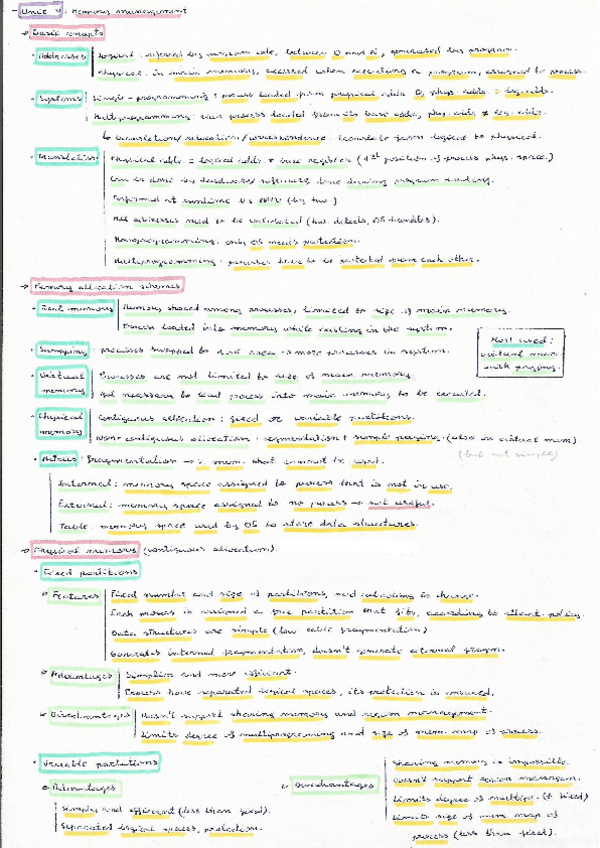 - Unit 4. Memory management
→ Basic concepts
· Addresses
Logical: referred by program code, between 0 and , generated by program.
Physical: in main memory, accessed when executing a program, assigned to process.
· Systems
Single-programming: process loaded from physical addr 0, phys. addr. = log. addr.
Multiprogramming: each process loaded from its base addr, phys. addr. ≠ log. addr.
↳ translation/relocation/correspondence: translate from logical to physical.
· Translation
Physical addr. = logical addr. + base register (1st position of process phys. space)
Can be done by hardware/software done during program loading.
Performed at runtime by MMU (by hw)
All addresses need to be validated (hw. detects, OS handles).
Monoprogramming: only OS needs protection.
Multiprogramming: processes have to be protected from each other.
→ Memory allocation schemes
· Real memory
Memory shared among processes, limited to size of main memory.
Process loaded into memory while residing in the system.
· Swapping: processes swapped to area → more processes in system.
Most used: virtual mem. with paging.
· Virtual memory
Processes are not limited to size of main memory
Not necessary to load process into main memory to be executed.
· Physical memory
Contiguous allocation: fixed or variable partitions.
Non-contiguous allocation: segmentation + simple paging. (also in virtual mem)
(but not simple)
· Metrics: fragmentation → % mem. that cannot be used.
Internal: memory space assigned to process that is not in use.
External: memory space assigned to no process → not useful.
Table: memory space used by OS to store data structures.
→ Physical memory (contiguous allocation).
· Fixed partitions
Features
Fixed number and size of partitions, need rebooting to change.
Each process is assigned a free partition that fits, according to policy.
Data structures are simple (low table fragmentation)
Generates internal fragmentation, doesn't generate external fragm.
Advantages
Simplicity and more efficient.
Process have separated logical spaces, its protection is ensured.
Disadvantages
Doesn't support sharing memory and region management.
Limits degree of multiprogramming and size of mem. map of process.
· Variable partitions
Advantages
Simple and efficient (less than fixed).
Separated logical spaces, protection.
Disadvantages
Sharing memory is impossible.
Doesn't support region managem.
Limits degree of multipr. (+ fixed)
Limits size of mem map of
process (less than fixed).